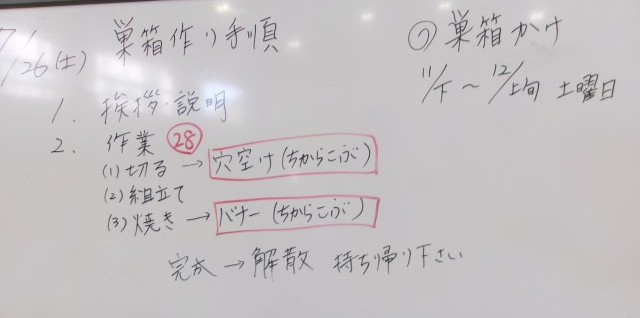 7/26(土) 巣箱作り手順
1. 挨拶・説明
2. 作業 28
(1)切る → 穴空け(ちからこぶ)
(2)組立て
(3)焼き → バナー(ちからこぶ)
完成 → 解散 持ち帰り下さい
巣箱かけ
11/下 ~ 12/上旬 土曜日